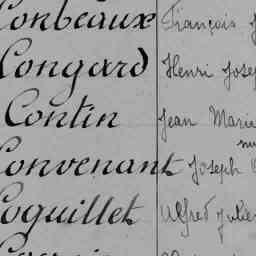 Conbeaux François
Congard Henri Josep
Contin Jean Marie
Convenant Joseph
Coquillet Alfred Julie